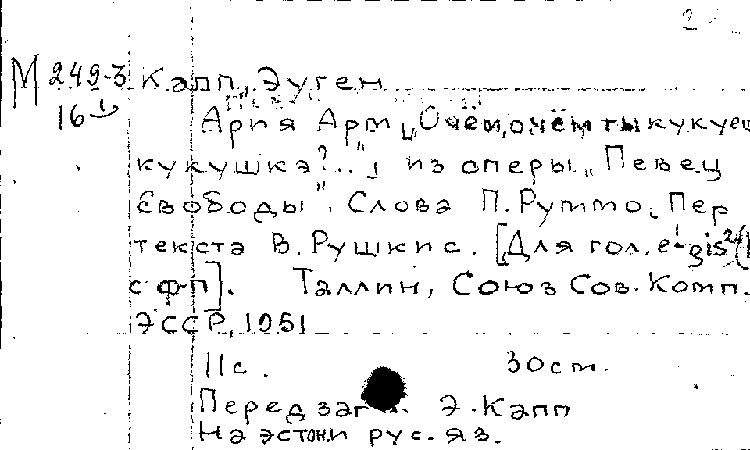 М 249-3 Капп, Эуген
16
Ария Арм „О чём, о чём ты кукуеш
кукушка?..", из оперы „Певец
Свободы". Слова П. Руммо. Пер
текста В. Рушкис. [Для гол. e¹-gis²(
с ф-п]. Таллин, Союз Сов. Комп.
ЭССР, 1951
11 с. 30 cm.
Перед заг Э. Капп
На эстон. и рус. яз.